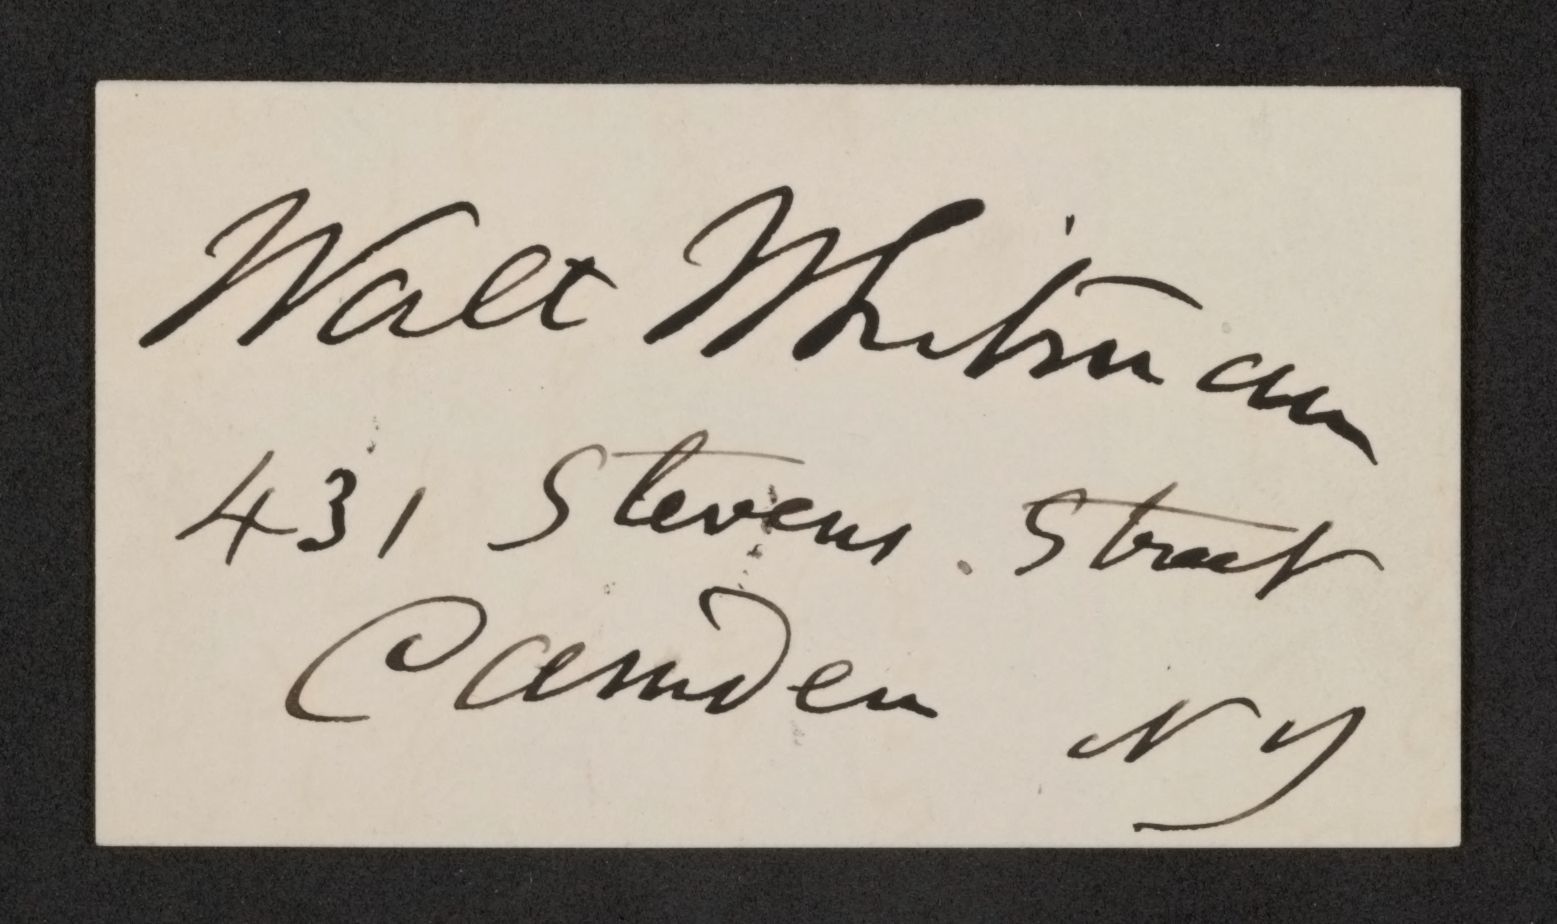 Walt Whitman
431 Stevens Street
Camden N J